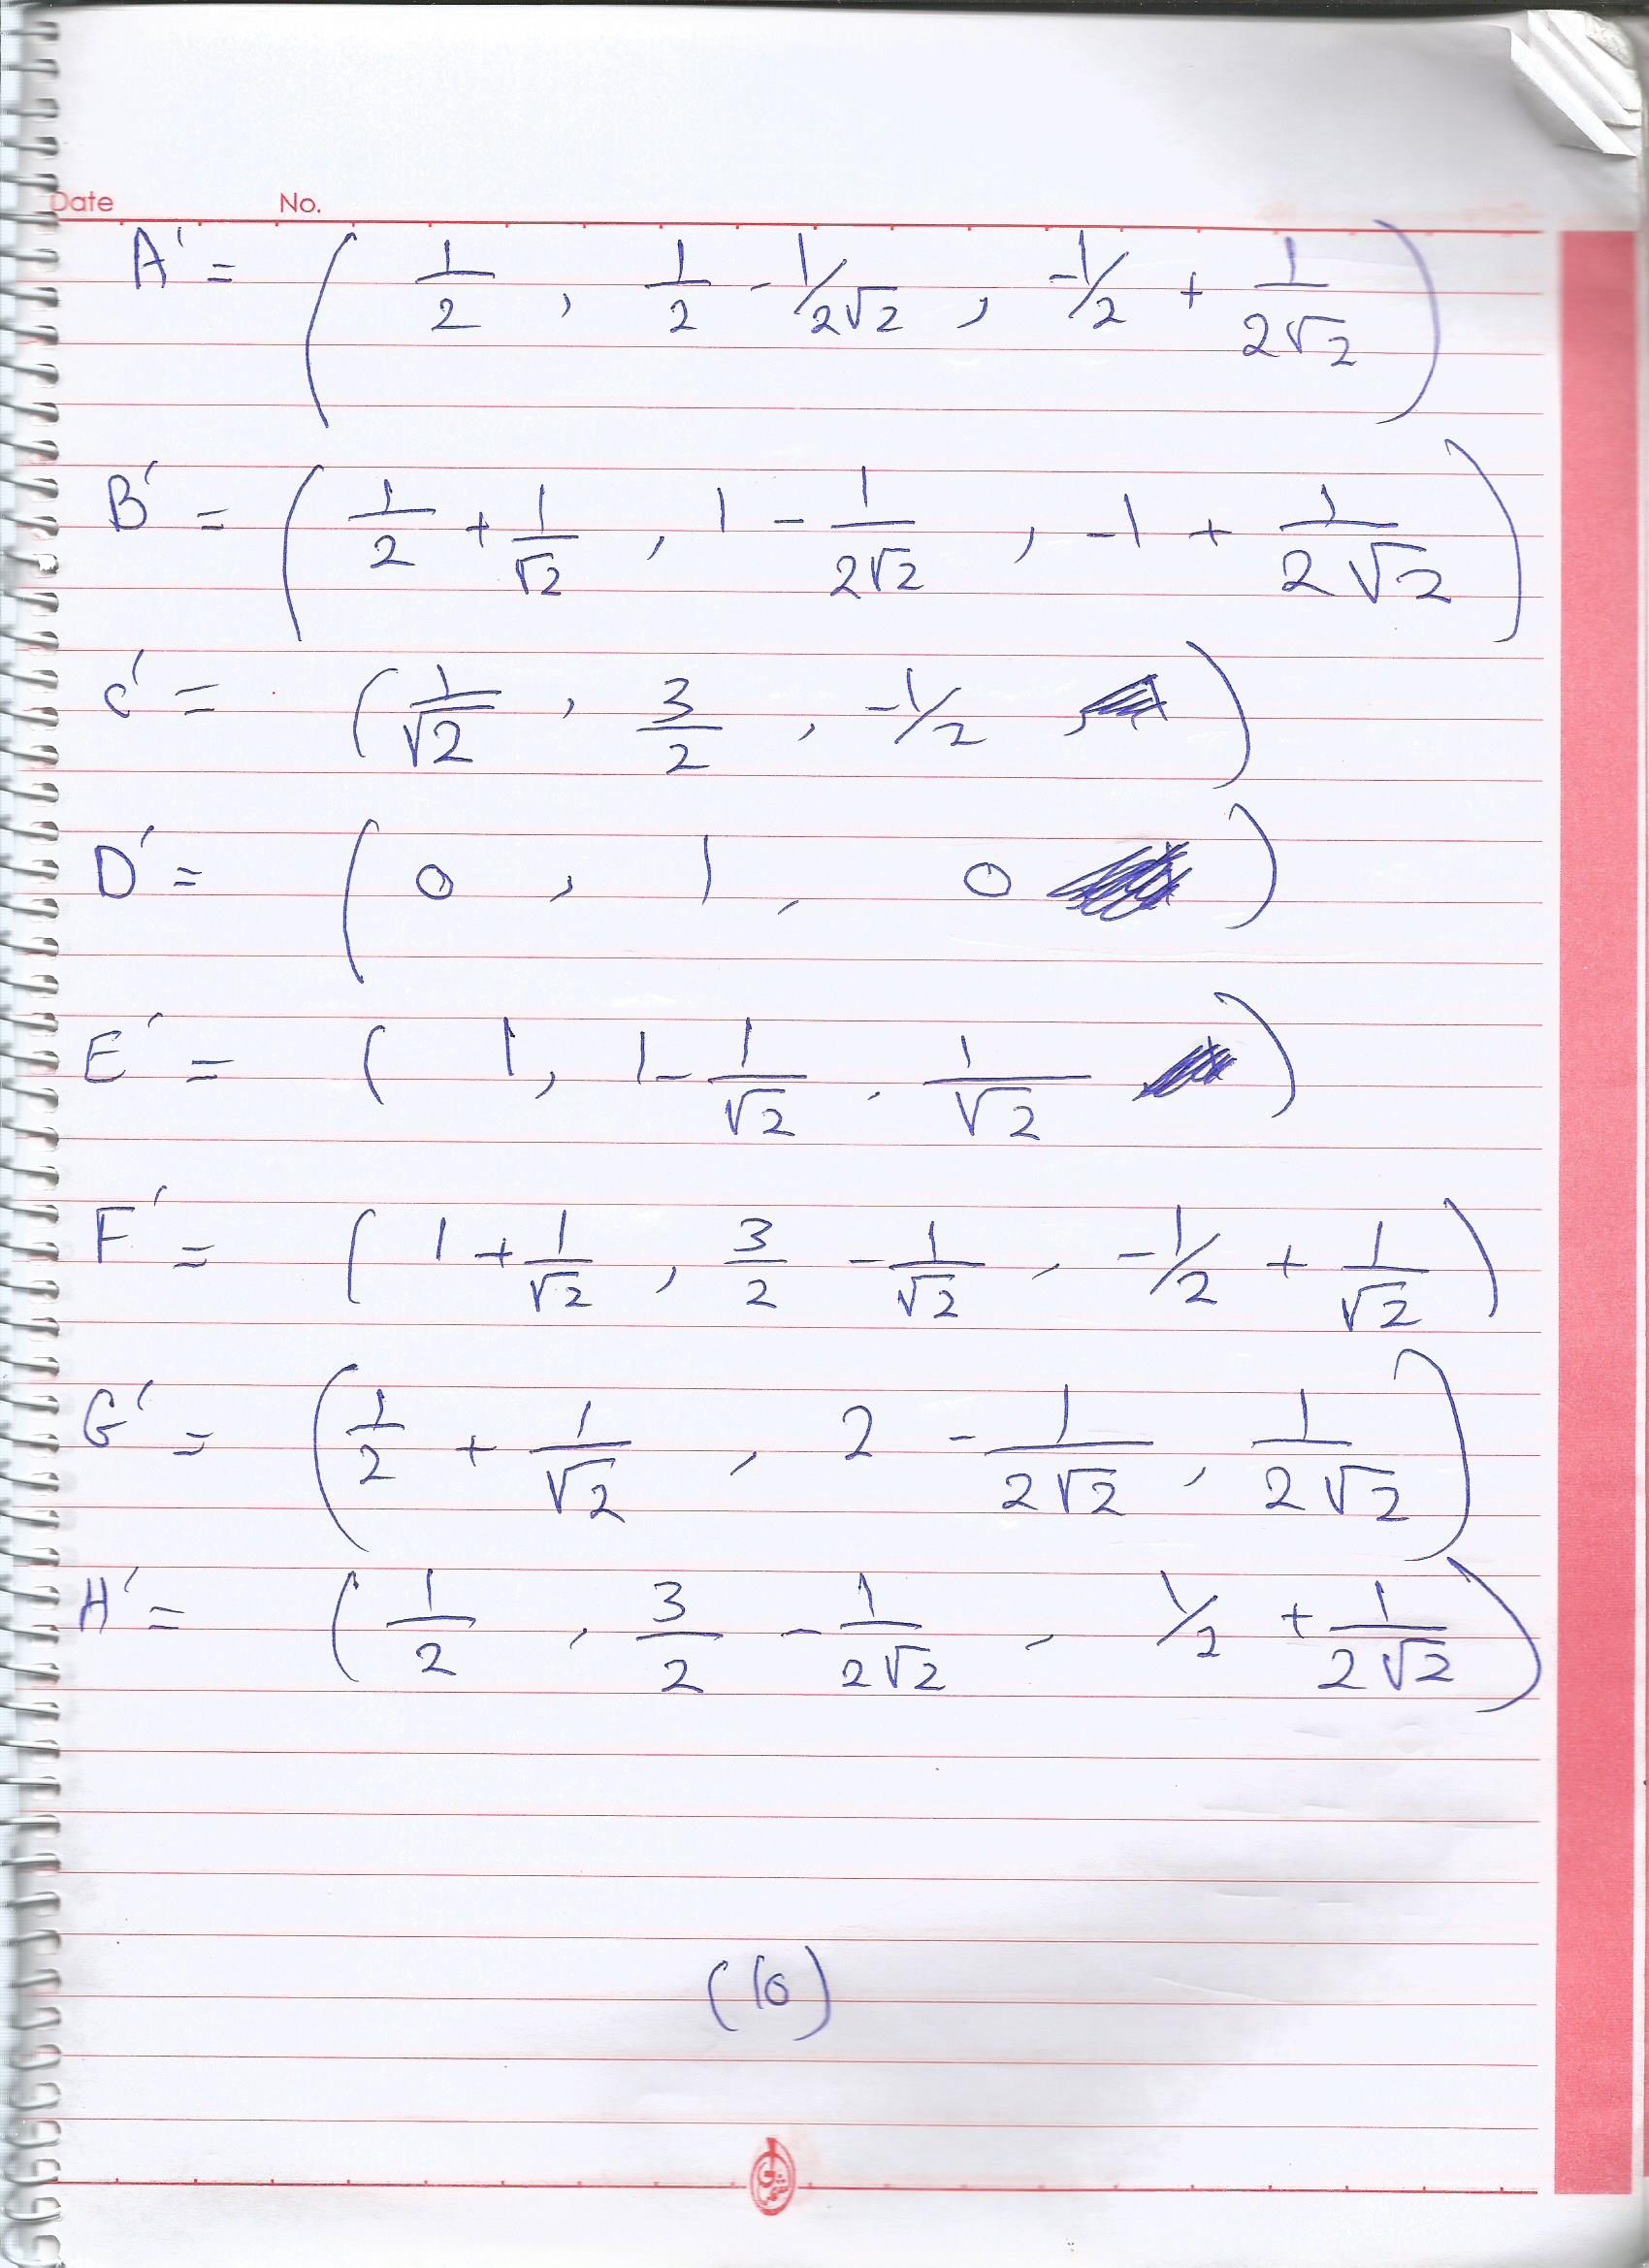 Date No.
A' = ( 1/2 , 1/2 - 1/2√2 , -1/2 + 1/2√2 )
B' = ( 1/2 + 1/√2 , 1 - 1/2√2 , -1 + 1/2√2 )
C' = ( 1/√2 , 3/2 , -1/2 )
D' = ( 0 , 1 , 0 )
E' = ( 1 , 1 - 1/√2 , 1/√2 )
F' = ( 1 + 1/√2 , 3/2 - 1/√2 , -1/2 + 1/√2 )
G' = ( 1/2 + 1/√2 , 2 - 1/2√2 , 1/2√2 )
H' = ( 1/2 , 3/2 - 1/2√2 , 1/2 + 1/2√2 )
(10)